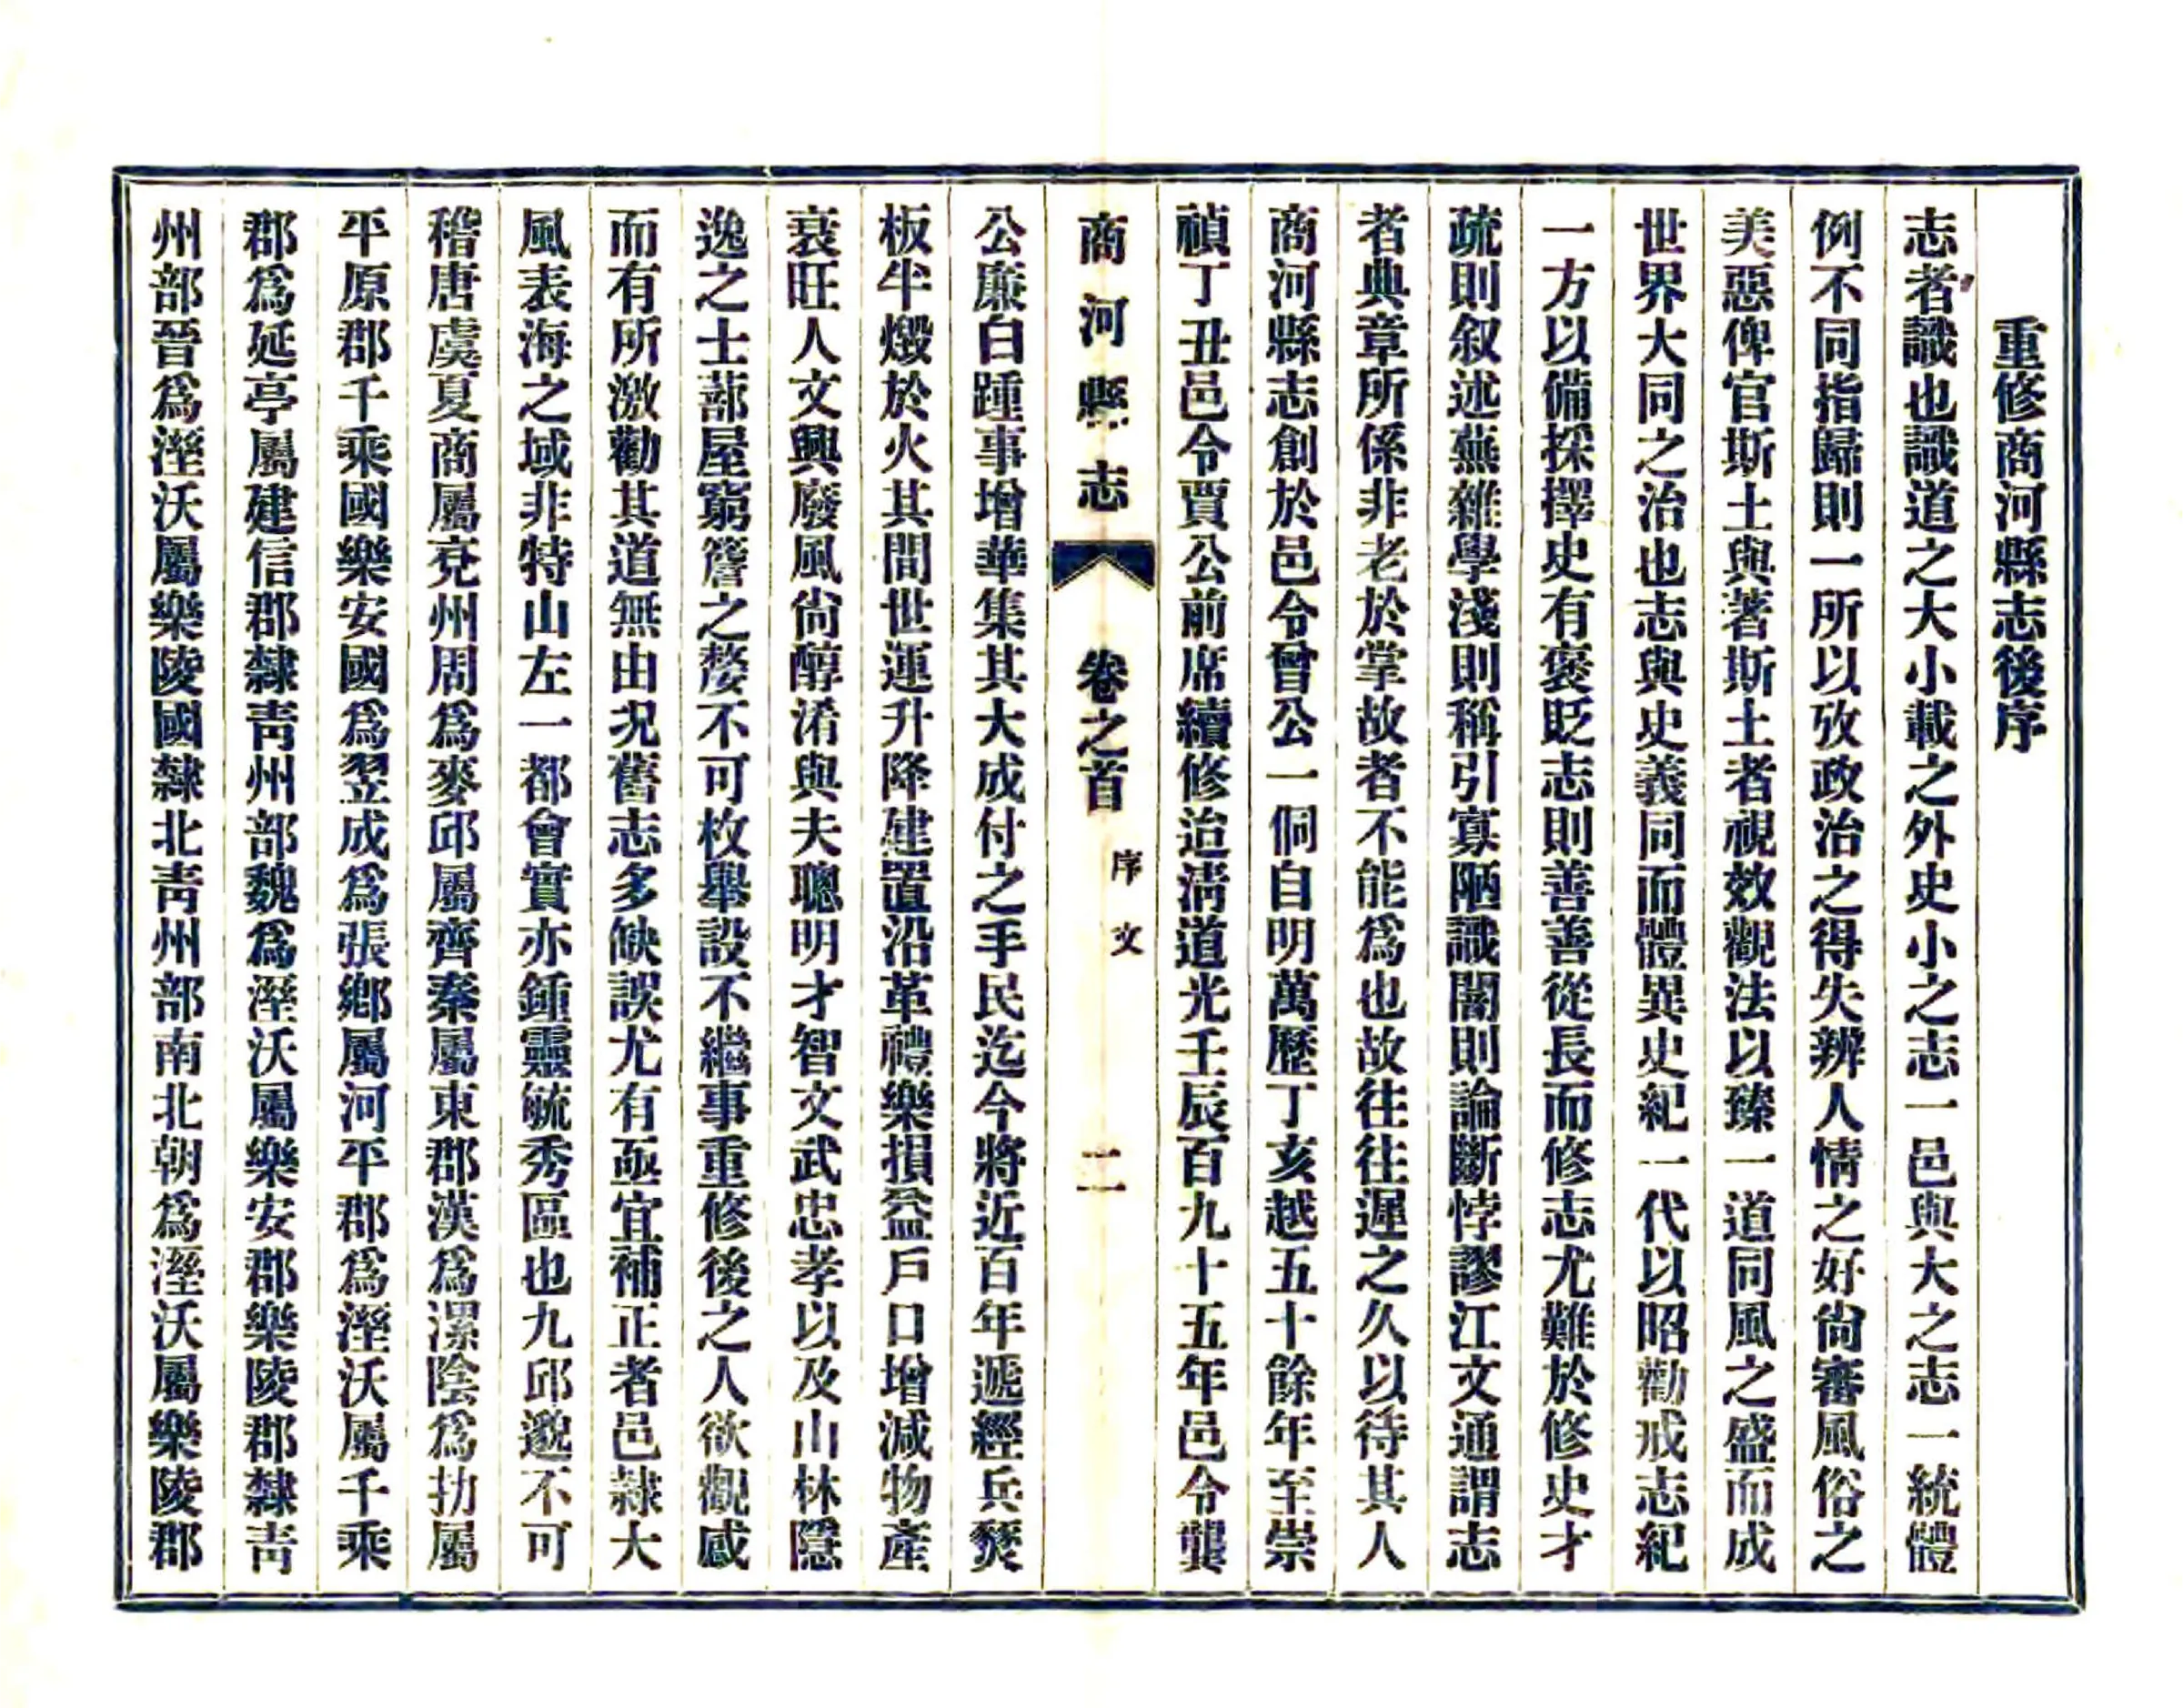 重修商河縣志後序
志者識也識道之大小載之外史小之志一邑與大之志一統體
例不同指歸則一所以攷政治之得失辨人情之好尙審風俗之
美惡俾官斯土與著斯土者視效觀法以臻一道同風之盛而成
世界大同之治也志與史義同而體異史紀一代以昭勸戒志紀
一方以備採擇史有褒貶志則善善從長而修志尤難於修史才
疏則叙述蕪雜學淺則稱引寡陋識闇則論斷悖謬江文通謂志
者典章所係非老於掌故者不能爲也故往往遲之久以待其人
商河縣志創於邑令曾公一侗自明萬歷丁亥越五十餘年至崇
禎丁丑邑令賈公前席續修迨淸道光壬辰百九十五年邑令龔
商河縣志 卷之首 序文 二
公廉白踵事增華集其大成付之手民迄今將近百年遞經兵燹
板半燬於火其間世運升降建置沿革禮樂損益戶口增減物產
衰旺人文興廢風尙醇淆與夫聰明才智文武忠孝以及山林隱
逸之士蔀屋窮簷之嫠不可枚舉設不繼事重修後之人欲觀感
而有所激勸其道無由况舊志多缺誤尤有亟宜補正者邑隷大
風表海之域非特山左一都會實亦鍾靈毓秀區也九邱邈不可
稽唐虞夏商屬兗州周爲麥邱屬齊秦屬東郡漢爲漯陰爲朸屬
平原郡千乘國樂安國爲翌成爲張鄉屬河平郡爲溼沃屬千乘
郡爲延亭屬建信郡隸靑州部魏爲溼沃屬樂安郡樂陵郡隸靑
州部晉爲溼沃屬樂陵國隸北靑州部南北朝爲溼沃屬樂陵郡